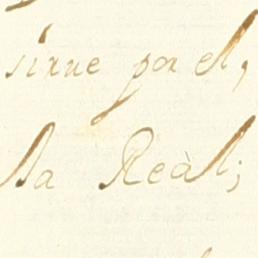 sirue por el,
la Real;